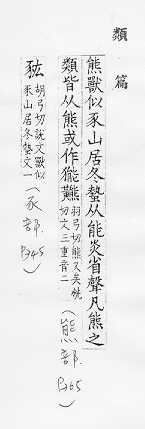 類篇
熊獸似豕山居冬蟄从能炎省聲凡熊之
類皆从熊或作㷱䵻羽弓切熊又矣殊
切文三重音二
(熊部. P365)
豵胡弓切說文獸似
豕山居冬蟄文一
(豕部. P345)